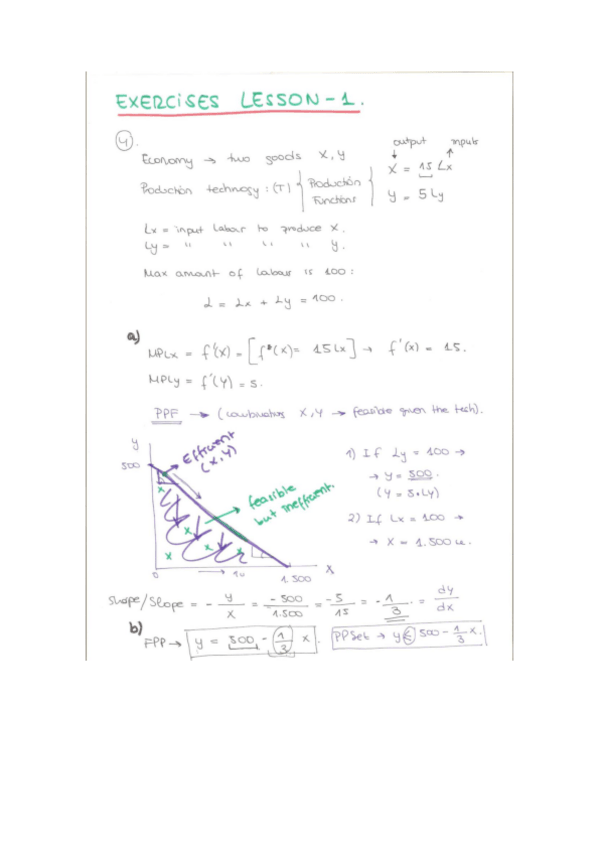 EXERCISES LESSON-1.
4.
output inputs
Economy → two goods X, Y
X = 15 Lx
Production technogy: (T) { Production Functions } Y = 5 Ly
Lx = input labour to produce X.
Ly = " " " " Y.
Max amount of labour is 100:
L = Lx + Ly = 100.
a)
MPLx = f'(x) = [f(x) = 15 Lx] → f'(x) = 15.
MPLy = f'(Y) = 5.
PPF → (combinations X, Y → feasible given the tech).
y
500
Efficient (x, y)
feasible but inefficient.
0
1.500
X
1) If Ly = 100 →
→ Y = 500.
(Y = 5·Ly)
2) If Lx = 100 →
→ X = 1.500 u.
Shape/Slope = - y/x = -500/1.500 = -5/15 = -1/3 = dy/dx
b)
FPP → y = 500 - 1/3 x.
PPSet → y ≤ 500 - 1/3 x.